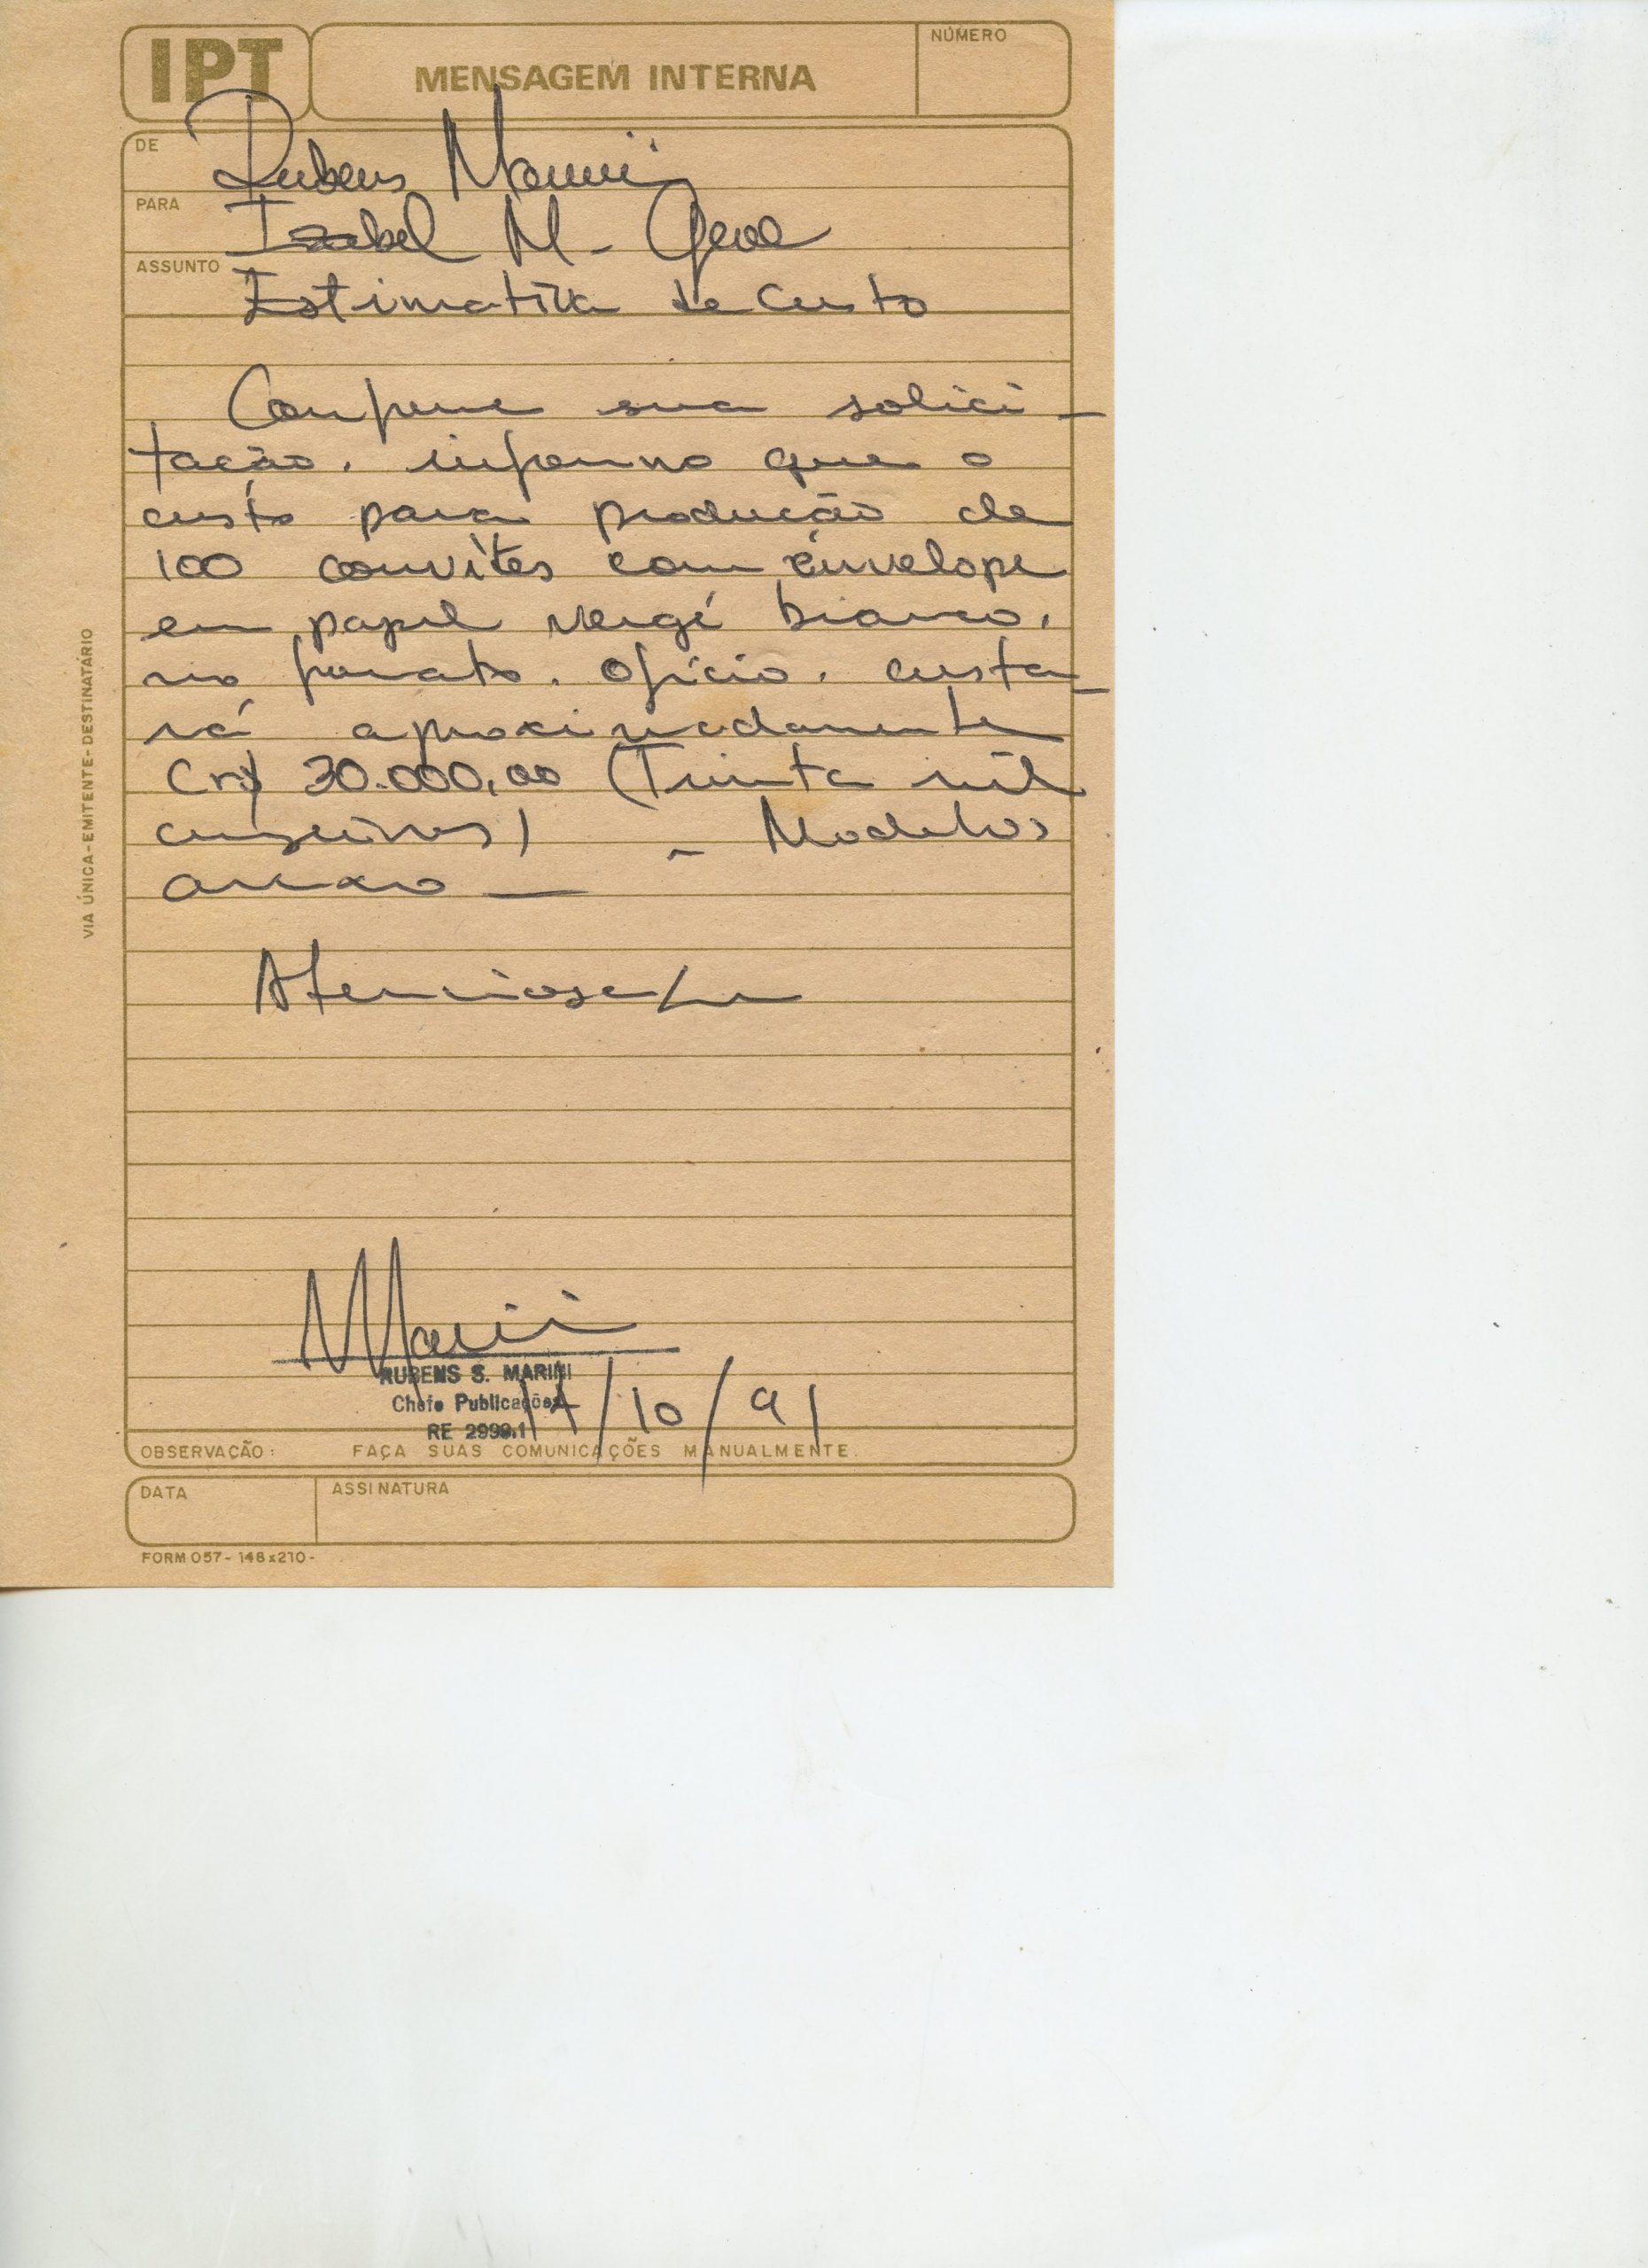 IPT
MENSAGEM INTERNA
NÚMERO
DE Rubens Marini
PARA Izabel M.
ASSUNTO Estimativa de Custo
Conforme sua solici-
tação, informo que o
custo para produção de
100 convites com envelope
em papel vergé branco,
no formato ofício, custa-
rá aproximadamente
Cr$ 30.000,00 (Trinta mil
cruzeiros) - Modelos
anexo -
Atenciosamente
Marini
RUBENS S. MARINI
Chefe Publicações
RE 2999.1
14/10/91
OBSERVAÇÃO: FAÇA SUAS COMUNICAÇÕES MANUALMENTE.
DATA
ASSINATURA
FORM 057 - 148x210 -
VIA ÚNICA - EMITENTE - DESTINATÁRIO